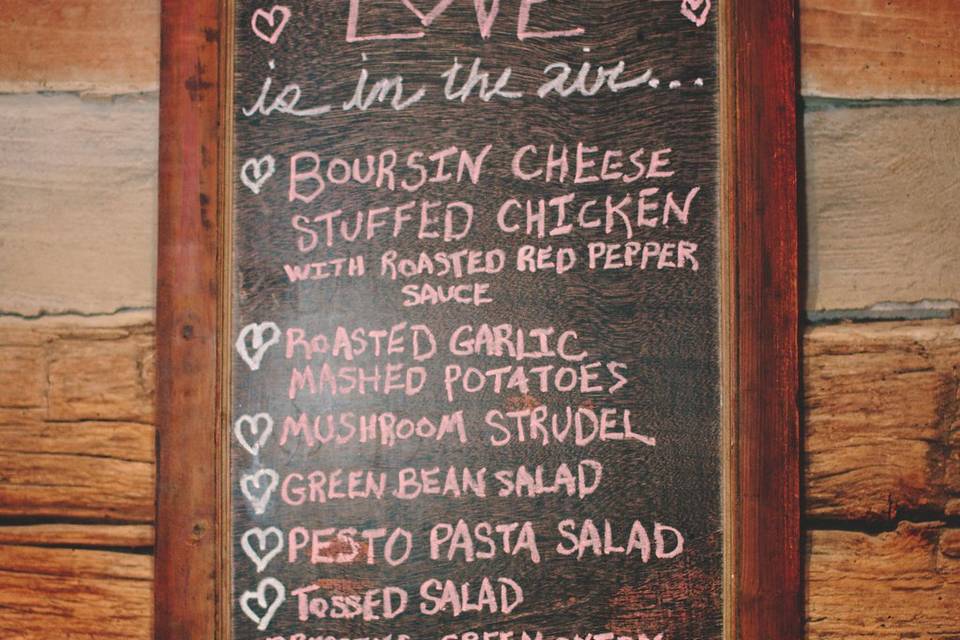 LOVE
is in the air...
BOURSIN CHEESE
STUFFED CHICKEN
WITH ROASTED RED PEPPER
SAUCE
ROASTED GARLIC
MASHED POTATOES
MUSHROOM STRUDEL
GREEN BEAN SALAD
PESTO PASTA SALAD
TOSSED SALAD
GREEN ONION